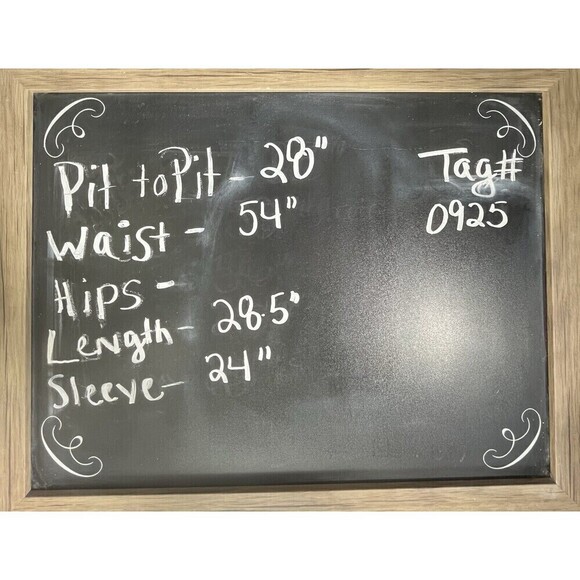 Pit to Pit - 28"
Waist - 54"
Hips -
Length - 28.5"
Sleeve - 24"
Tag#
0925